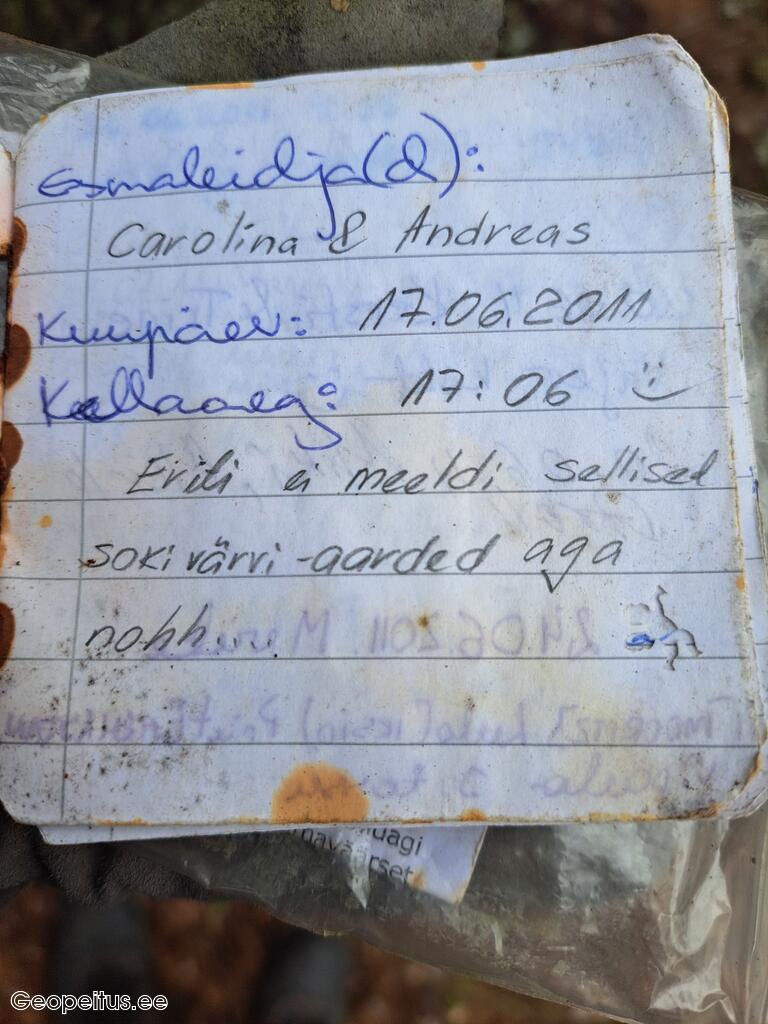 Esmaleidja(d):
Carolina & Andreas
Kuupäev: 17.06.2011
Kellaaeg: 17:06
Eriti ei meeldi sellised
soki värvi -aarded aga
nohh...
24.06.2011
Geopeitus.ee